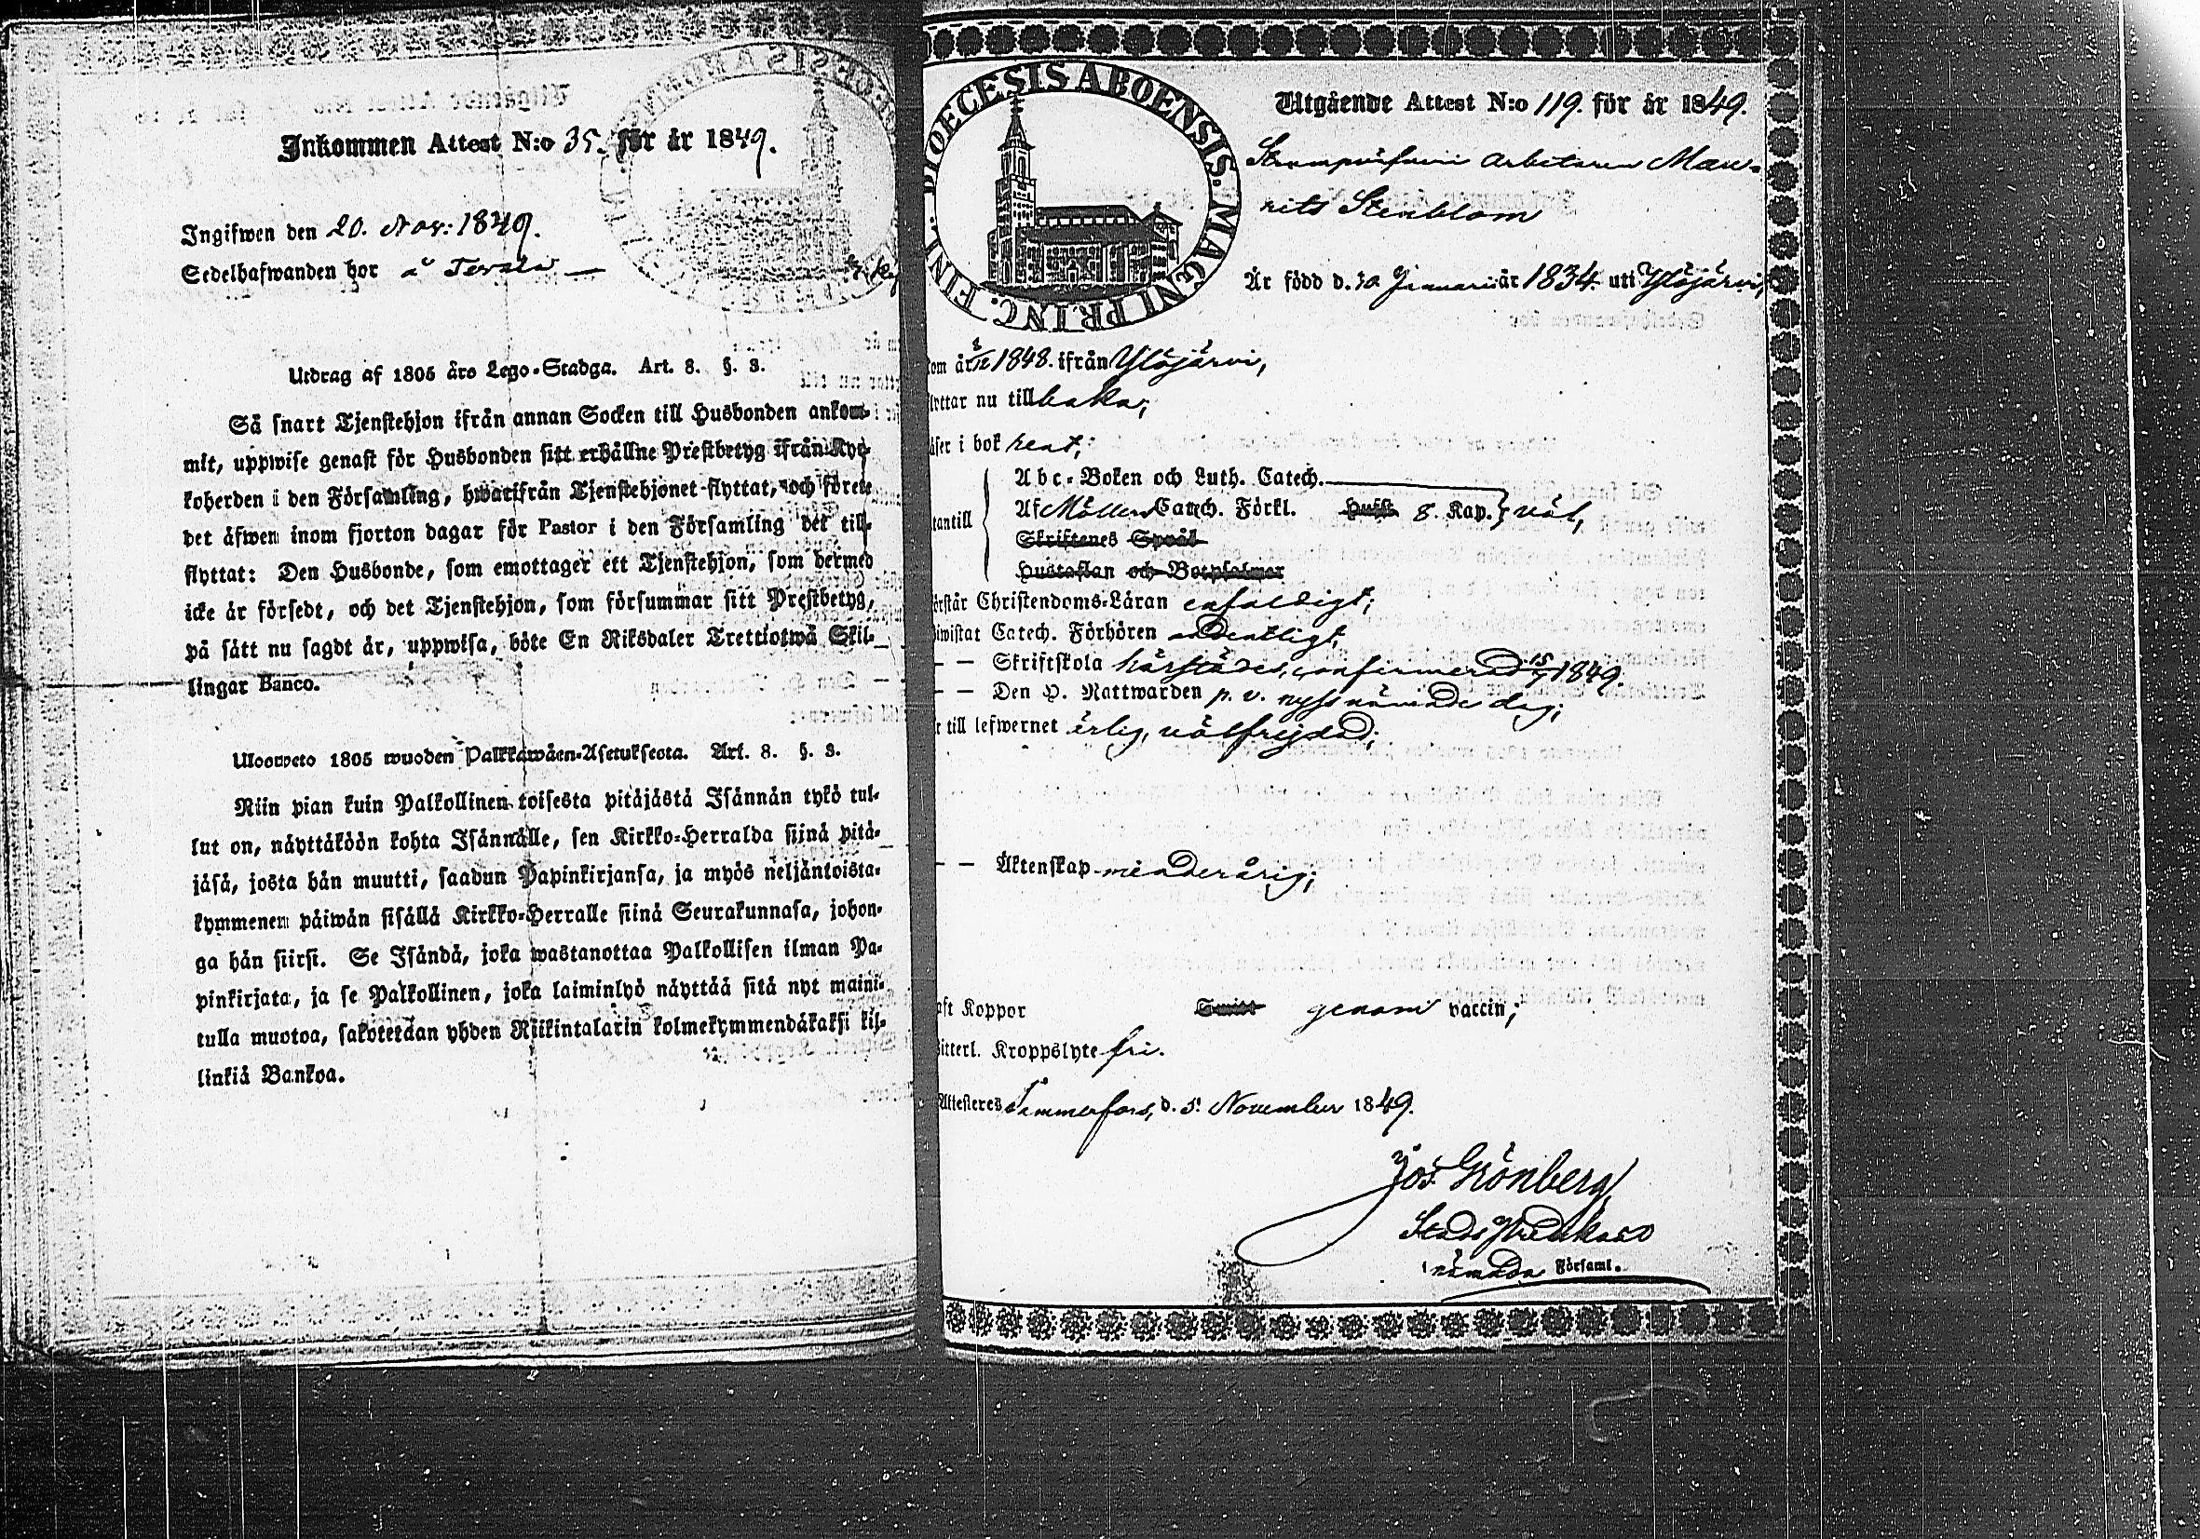 Inkommen Attest N:o 35. för år 1849.
Ingifwen den 20. Nov: 1849.
Sedelhafwanden bor å Terälä
Utdrag af 1805 års Lego-Stadga. Art. 8. §. 3.
Så snart Tjenstehjon ifrån annan Socken till Husbonden ankom-
mit, uppwise genast för Husbonden sitt erhållne Prestbetyg ifrån Kyr-
koherden i den Församling, hwarifrån Tjenstehjonet flyttat, och förete
det äfwen inom fjorton dagar för Pastor i den Församling det till-
flyttat: Den Husbonde, som emottager ett Tjenstehjon, som dermed
icke är försedt, och det Tjenstehjon, som försummar sitt Prestbetyg,
på sätt nu sagdt är, uppwisa, böte En Riksdaler Trettiotwå Skil-
lingar Banco.
Uloosweto 1805 wuoden Palkkawäen-Asetuksesta. Art. 8. §. 3.
Niin pian kuin Palkollinen toisesta pitäjästä Isännän tykö tul-
lut on, näyttäköön kohta Isännälle, sen Kirkko-Herralda siinä pitä-
jäsä, josta hän muutti, saadun Papinkirjansa, ja myös neljäntoista-
kymmenen päiwän sisällä Kirkko-Herralle siinä Seurakunnasa, johon-
ga hän siirsi. Se Isändä, joka wastanottaa Palkollisen ilman Pa-
pinkirjata, ja se Palkollinen, joka laiminlyö näyttää sitä nyt maini-
tulla muotoa, sakotetaan yhden Riikintalarin kolmekymmendäkaksi kil-
linkiä Bankoa.
DIOECESIS ABOENSIS. MAGNI PRINC. FINL.
Utgående Attest N:o 119. för år 1849.
Strumpväfveri arbetaren Mau-
rits Stenblom
Är född d. 30 Januari år 1834. uti Ylöjärvi,
om år 1848. ifrån Ylöjärvi,
lyttar nu till baka;
äser i bok rent;
Abc-Boken och Luth. Catech.
tantill Af Möllers Catech. Förkl. Husts 8 Kap. väl,
Skriftenes Språk
Hustaflan och Botpsalmer
örstår Christendoms-Läran enfaldigt;
iwistat Catech. Förhören ordentligt,
— — Skriftskola härstädes, confirmerad 15/7 1849.
— — Den H. Nattwarden p. v. nyssnämnde dag;
r till lefwernet ärlig, välfrejdad;
— — Äktenskap minderårig;
aft Koppor Smitt genom vaccin;
itterl. Kroppslyte fri.
Attesteres Tammerfors, d. 5. November 1849.
Jos. Grönberg
Stads Predikant
nämnda Församl.